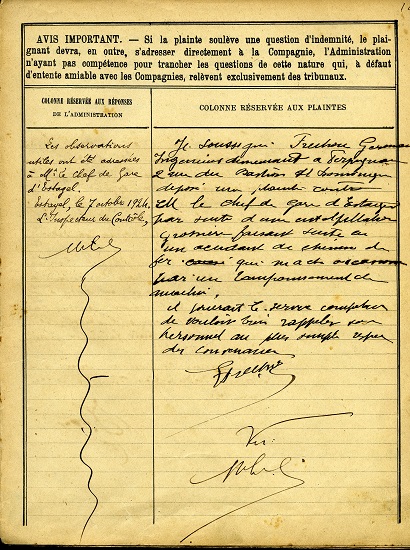 AVIS IMPORTANT. — Si la plainte soulève une question d'indemnité, le plai-
gnant devra, en outre, s'adresser directement à la Compagnie, l'Administration
n'ayant pas compétence pour trancher les questions de cette nature qui, à défaut
d'entente amiable avec les Compagnies, relèvent exclusivement des tribunaux.
COLONNE RÉSERVÉE AUX RÉPONSES
DE L'ADMINISTRATION
Les observations
utiles ont été adressées
à Mr le Chef de Gare
d'Estagel.
Estagel, le 7 octobre 1924.
L'Inspecteur du Contrôle,
COLONNE RÉSERVÉE AUX PLAINTES
Je soussigné
Ingénieur demeurant à Perpignan
2 rue du Bastion St Dominique
dépose une plainte contre
M le chef de gare d'Estagel
par suite d'une
grossière faisant suite à
un accident de chemin de
fer qui m'a
par un tamponnement de
de vouloir bien rappeler son
personnel au plus simple
des convenances
Vu